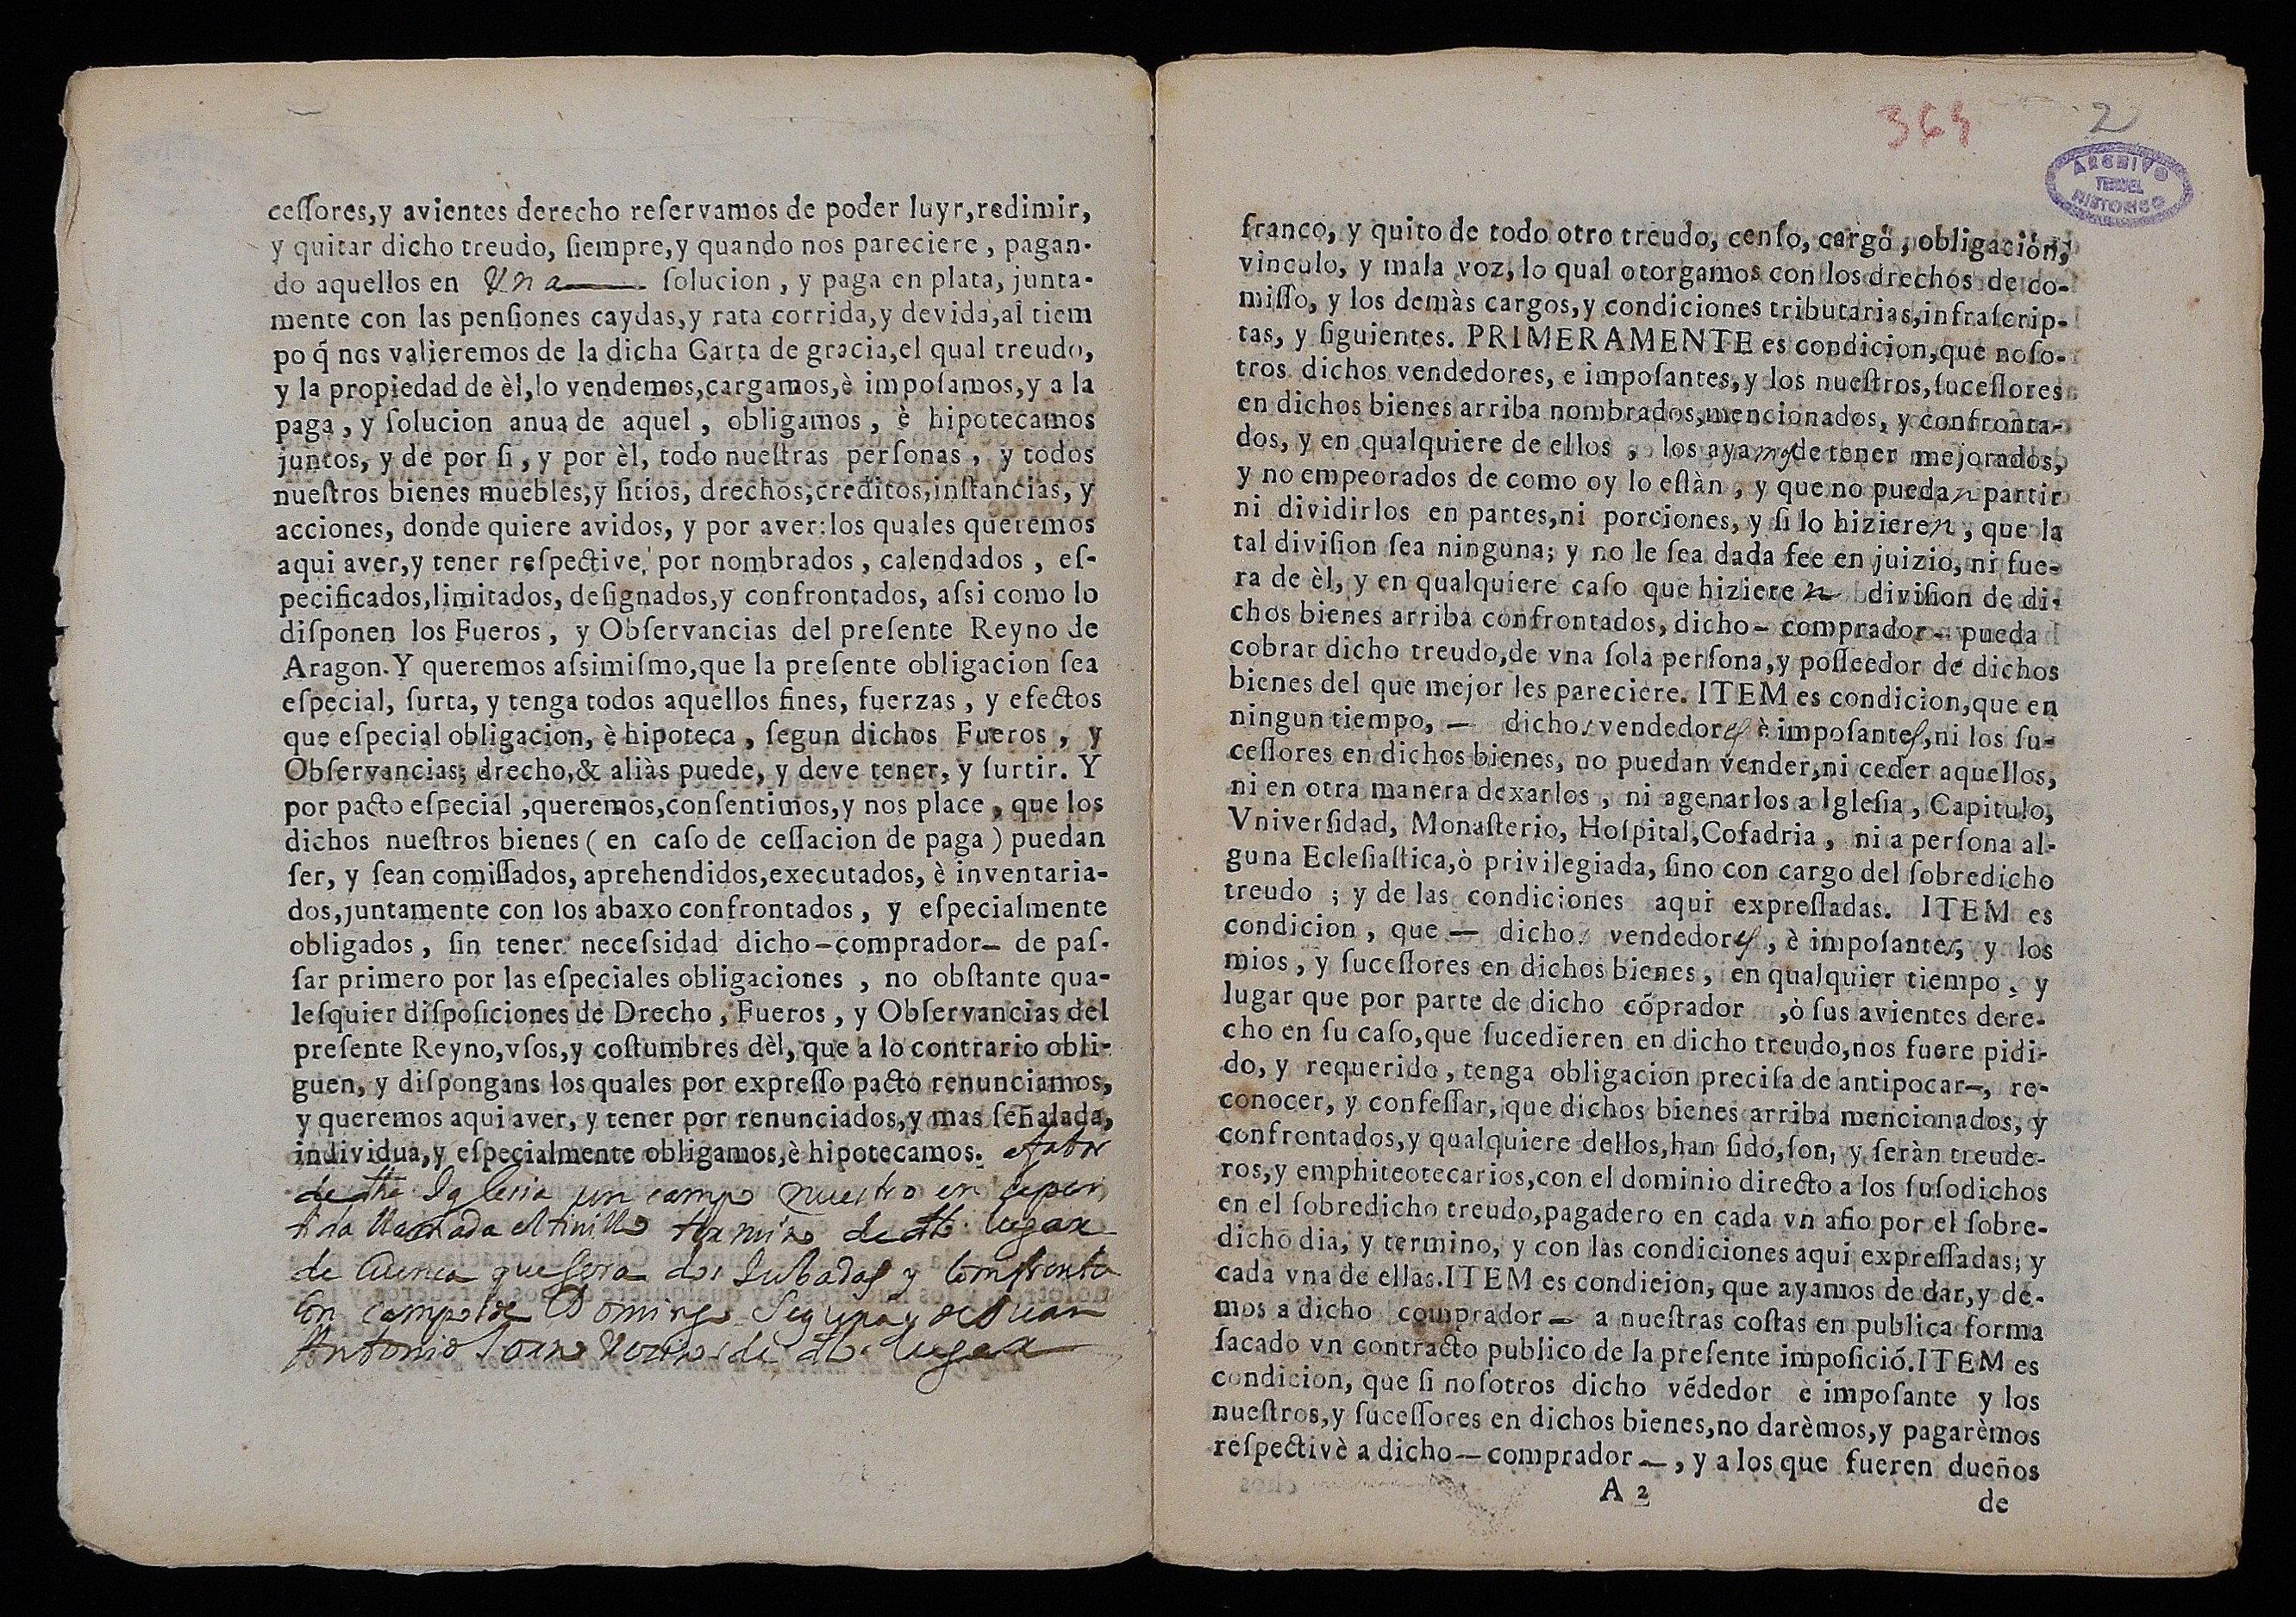 ceſſores,y avientes derecho reſervamos de poder luyr,redimir,
y quitar dicho treudo, ſiempre,y quando nos pareciere, pagan-
do aquellos en Vna ſolucion, y paga en plata, junta-
mente con las penſiones caydas,y rata corrida,y devida,al tiem
po q̃ nos valieremos de la dicha Carta de gracia,el qual treudo,
y la propiedad de èl,lo vendemos,cargamos,è impoſamos,y a la
paga, y ſolucion anua de aquel, obligamos, è hipotecamos
juntos, y de por ſi, y por èl, todo nueſtras perſonas, y todos
nueſtros bienes muebles,y ſitios, drechos,creditos,inſtancias, y
acciones, donde quiere avidos, y por aver:los quales queremos
aqui aver,y tener reſpective, por nombrados, calendados, eſ-
pecificados,limitados, deſignados,y confrontados, aſsi como lo
diſponen los Fueros, y Obſervancias del preſente Reyno de
Aragon.Y queremos aſsimiſmo,que la preſente obligacion ſea
eſpecial, ſurta, y tenga todos aquellos fines, fuerzas, y efectos
que eſpecial obligacion, è hipoteca, ſegun dichos Fueros, y
Obſervancias; drecho,& aliàs puede, y deve tener, y ſurtir. Y
por pacto eſpecial,queremos,conſentimos,y nos place, que los
dichos nueſtros bienes (en caſo de ceſſacion de paga) puedan
ſer, y ſean comiſſados, aprehendidos,executados, è inventaria-
dos,juntamente con los abaxo confrontados, y eſpecialmente
obligados, ſin tener neceſsidad dicho—comprador— de paſ-
ſar primero por las eſpeciales obligaciones, no obſtante qua-
leſquier diſpoſiciones de Drecho, Fueros, y Obſervancias del
preſente Reyno,vſos,y coſtumbres dèl, que a lo contrario obli-
guen, y diſpongans los quales por expreſſo pacto renunciamos,
y queremos aqui aver, y tener por renunciados,y mas ſeñalada,
individua,y eſpecialmente obligamos,è hipotecamos. afabor
de dha Iglesia un campo nuestro en la par
tida llamada termino de dho lugar
de Cuenca que sera dos Jubadas y confronta
Con campo de Domingo y de Juan
Antonio vezinos de dho lugar
364 2
ARCHIVO
TERUEL
HISTORICO
franco, y quito de todo otro treudo, cenſo, cargo, obligacion,
vinculo, y mala voz, lo qual otorgamos con los drechos de co-
miſſo, y los demàs cargos,y condiciones tributarias,infraſcrip-
tas, y ſiguientes. PRIMERAMENTE es condicion,que noſo-
tros dichos vendedores, e impoſantes,y los nueſtros,ſuceſſores
en dichos bienes arriba nombrados,mencionados, y confronta-
dos, y en qualquiere de ellos, los ayamos de tener mejorados,
y no empeorados de como oy lo eſtàn, y que no puedan partir
ni dividirlos en partes,ni porciones, y ſi lo hizieren, que la
tal diviſion ſea ninguna; y no le ſea dada fee en juizio, ni fue-
ra de èl, y en qualquiere caſo que hizieren diviſion de di-
chos bienes arriba confrontados, dicho— comprador— pueda
cobrar dicho treudo,de vna ſola perſona,y poſſeedor de dichos
bienes del que mejor les pareciere. ITEM es condicion,que en
ningun tiempo, — dichos vendedores è impoſantes,ni los ſu-
ceſſores en dichos bienes, no puedan vender,ni ceder aquellos,
ni en otra manera dexarlos, ni agenarlos a Igleſia, Capitulo,
Vniverſidad, Monaſterio, Hoſpital,Cofadria, ni a perſona al-
guna Ecleſiaſtica,ò privilegiada, ſino con cargo del ſobredicho
treudo; y de las condiciones aqui expreſſadas. ITEM es
condicion, que — dichos vendedores, è impoſantes, y los
mios, y ſuceſſores en dichos bienes, en qualquier tiempo, y
lugar que por parte de dicho cõprador ,ò ſus avientes dere-
cho en ſu caſo,que ſucedieren en dicho treudo,nos fuere pidi-
do, y requerido, tenga obligacion preciſa de antipocar—, re-
conocer, y confeſſar, que dichos bienes arriba mencionados, y
confrontados,y qualquiere dellos,han ſido,ſon, y ſeràn treude-
ros,y emphiteotecarios,con el dominio directo a los ſuſodichos
en el ſobredicho treudo,pagadero en cada vn año por el ſobre-
dicho dia, y termino, y con las condiciones aqui expreſſadas; y
cada vna de ellas.ITEM es condicion, que ayamos de dar,y de-
mos a dicho comprador — a nueſtras coſtas en publica forma
ſacado vn contracto publico de la preſente impoſició.ITEM es
condicion, que ſi noſotros dicho vẽdedor e impoſante y los
nueſtros,y ſuceſſores en dichos bienes,no darèmos,y pagarèmos
reſpectivè a dicho—comprador—, y a los que fueren dueños
A 2
de